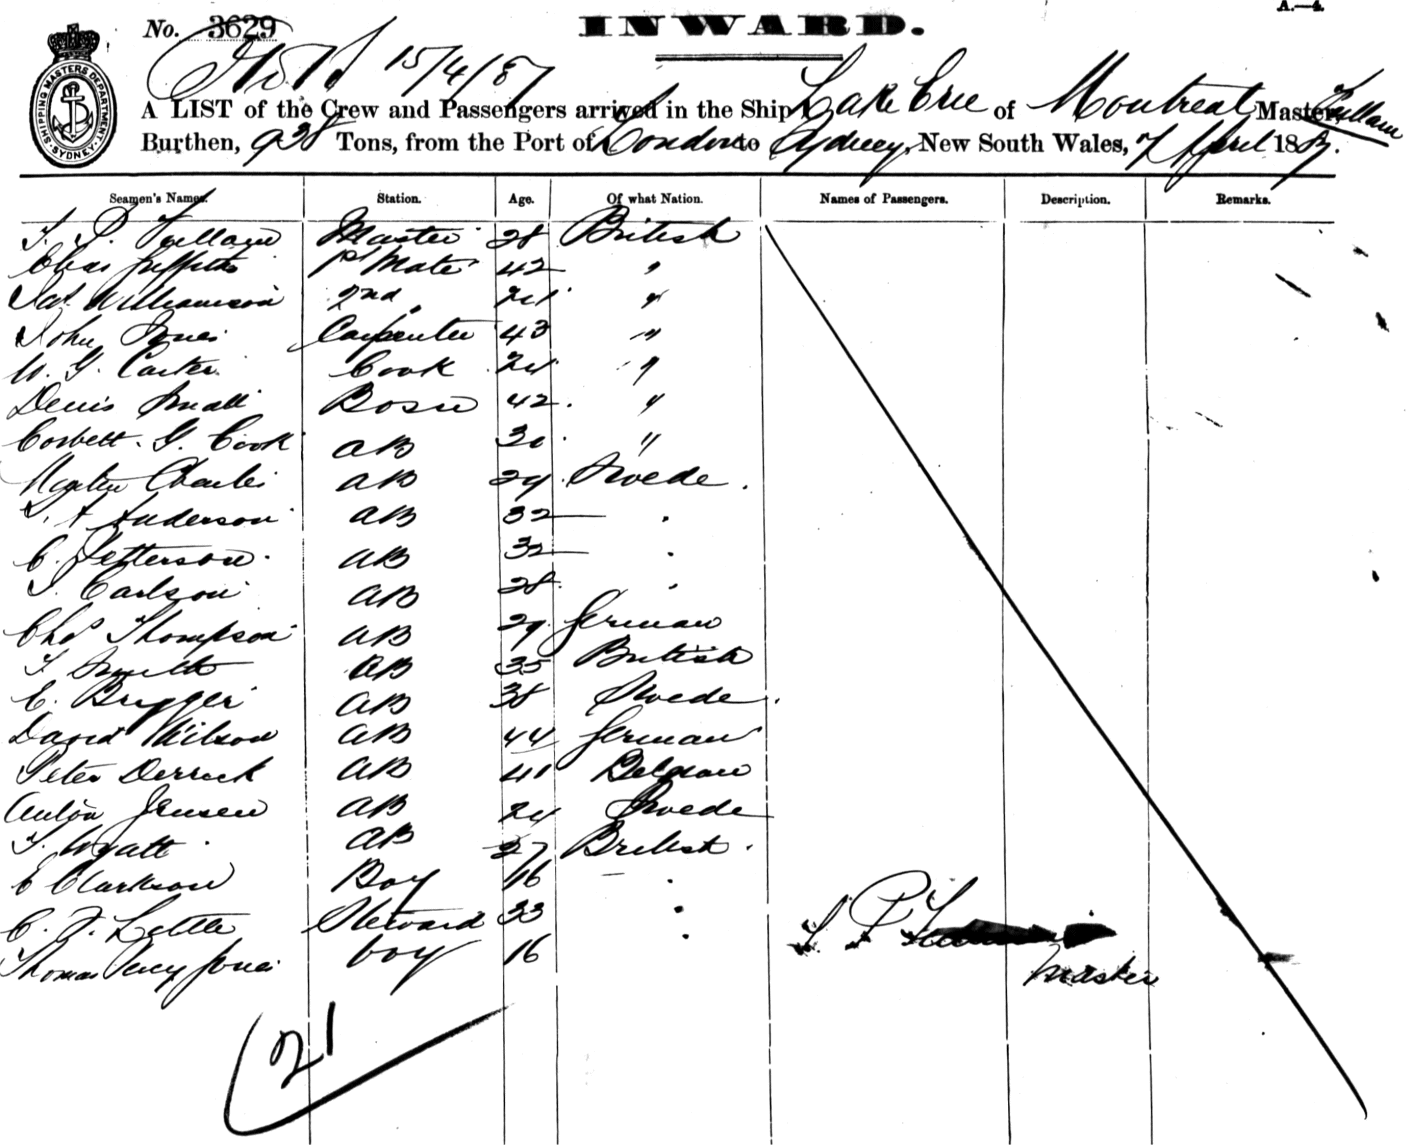 A.—4.
No. 3629 INWARD.
15/4/87
SHIPPING MASTERS DEPARTMENT SYDNEY
A LIST of the Crew and Passengers arrived in the Ship Lake Erie of Montreal Master,
Burthen, 938 Tons, from the Port of London to Sydney, New South Wales, 7 April 1887.
Seamen's Names. Station. Age. Of what Nation. Names of Passengers. Description. Remarks.
Master 28 British
Chas Griffiths 1st Mate 42 "
Williamson 2nd " "
John Jones Carpenter 43 "
W. G. Carter Cook "
Denis Small Bosn 42. "
Corbett. G. Cook AB "
Charles AB 29. Swede.
Anderson AB 32 .
C. Petterson. AB 32 .
Carlson AB 28. .
Chas Thompson AB 29. German
Smith AB 35 British
AB 38 Swede.
David Wilson AB 44 German
Peter Derrick AB 41 Belgian
Anton Jensen AB 24 Swede
Wyatt AB 27 British.
C Clarkson Boy 16 .
C. Little Steward 33 .
Thomas Percy Jones boy 16 .
Master
21